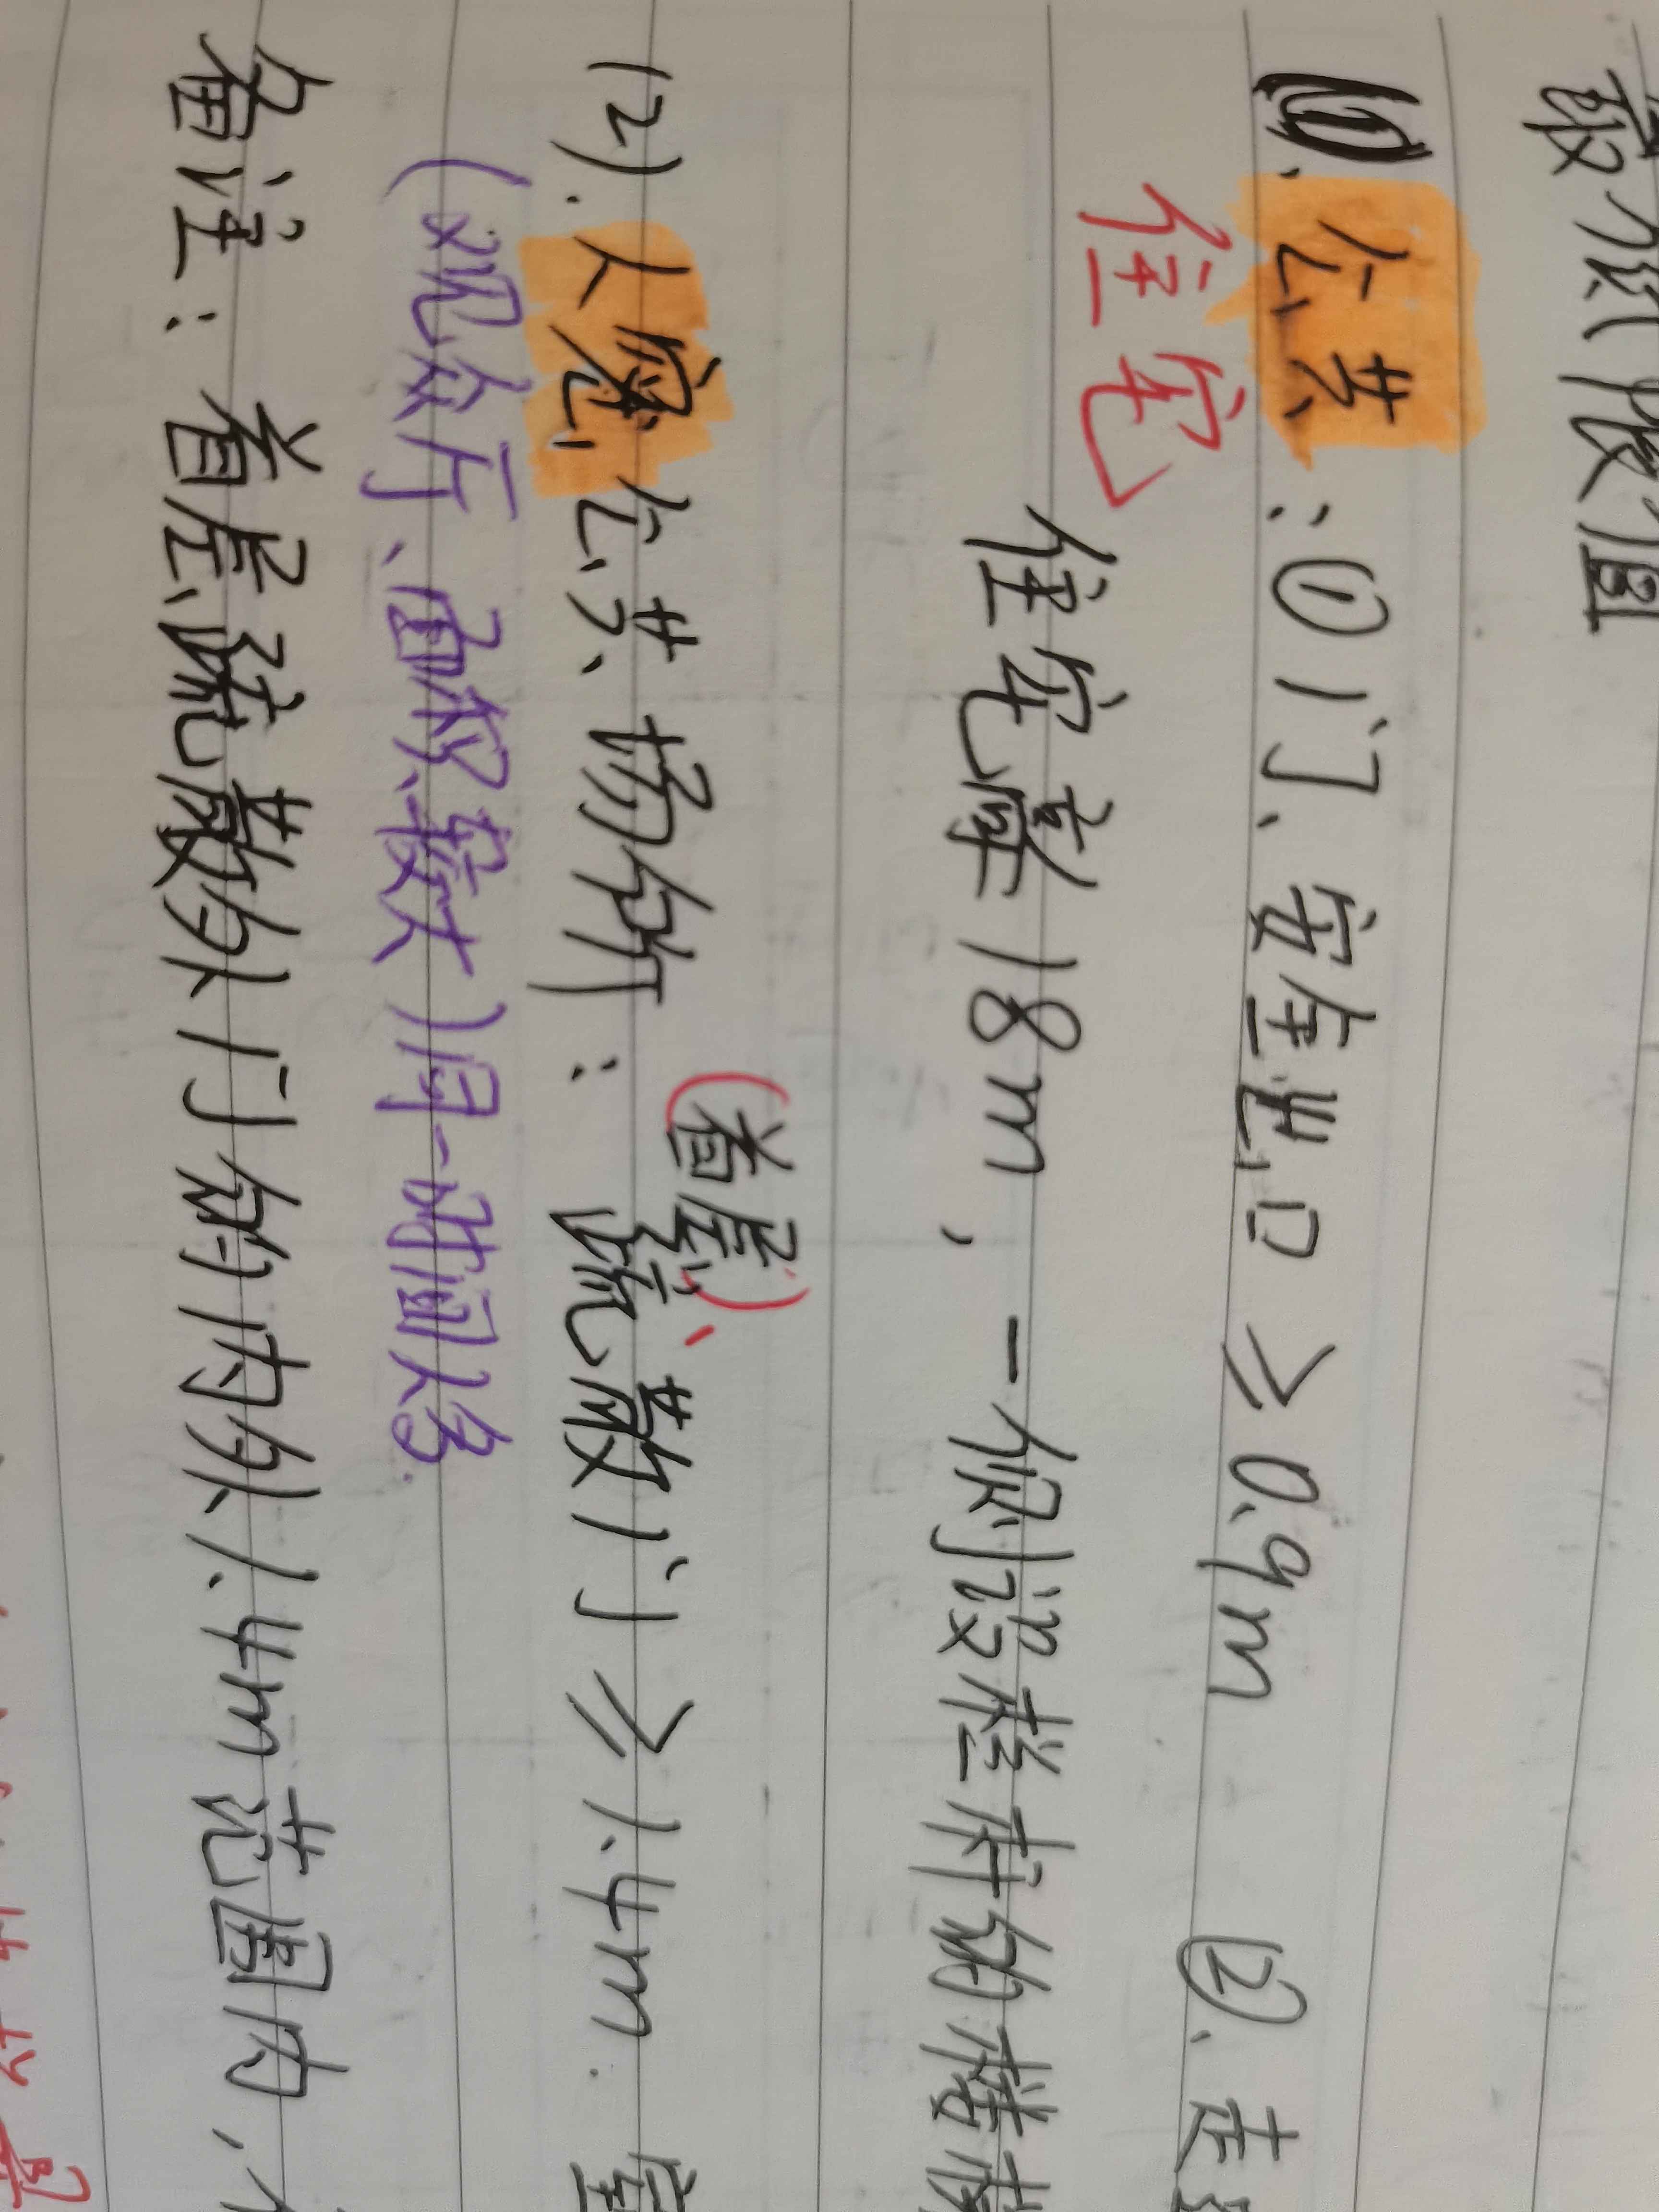 最低限值
(1). 公共:①门、安全出口≥0.9m ②.走
住宅
住宅毒18m,一侧设栏杆的楼梯
(首层)、
(2).人密公共场所: 疏散门≥1.4m. 室
(观众厅、面积较大)同一时间人多.
备注:首层疏散外门的内外1.4m范围内,不